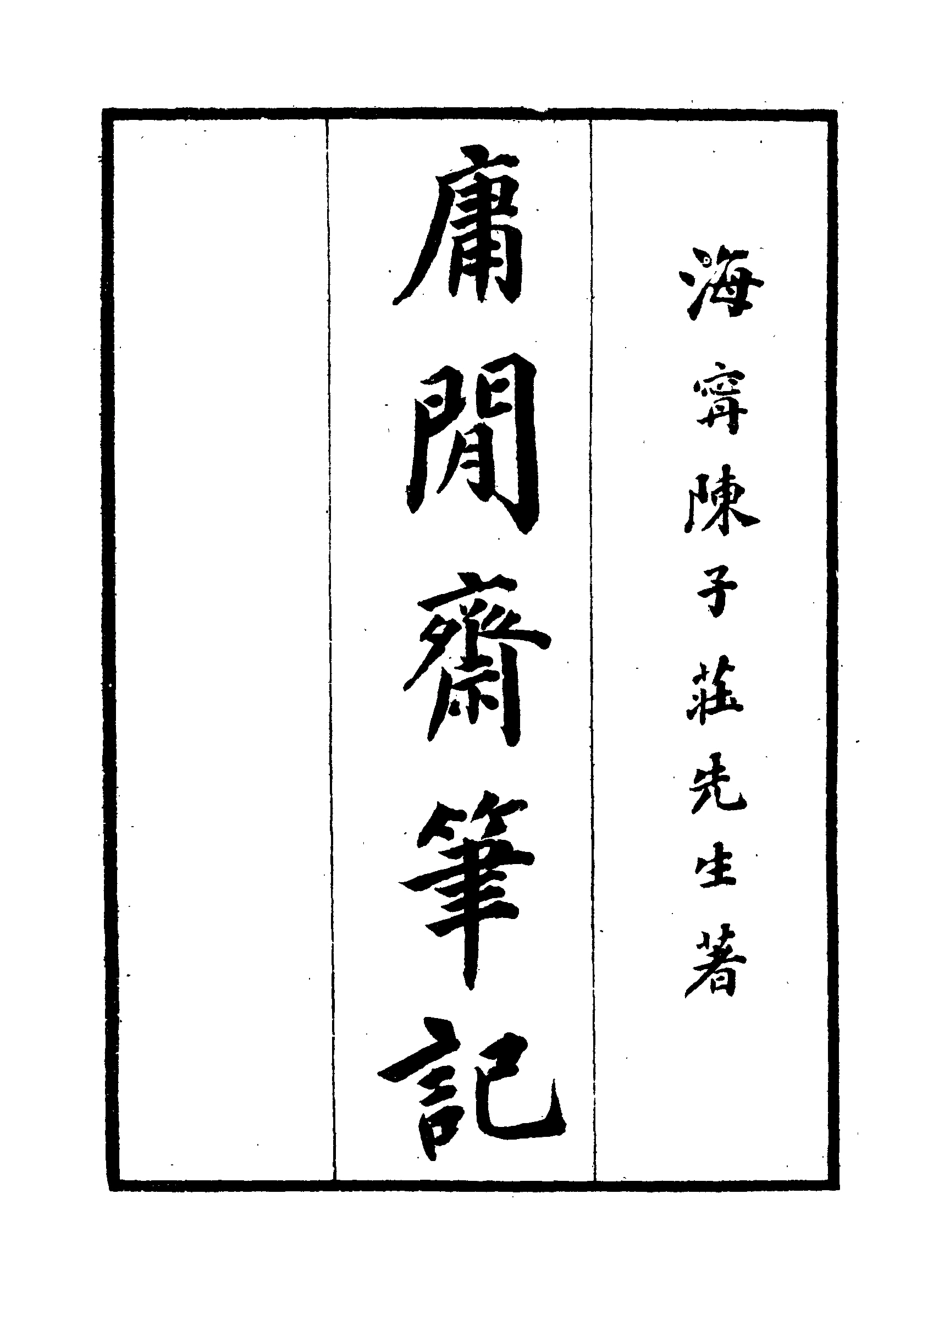 海寗陳子莊先生著
庸閒齋筆記